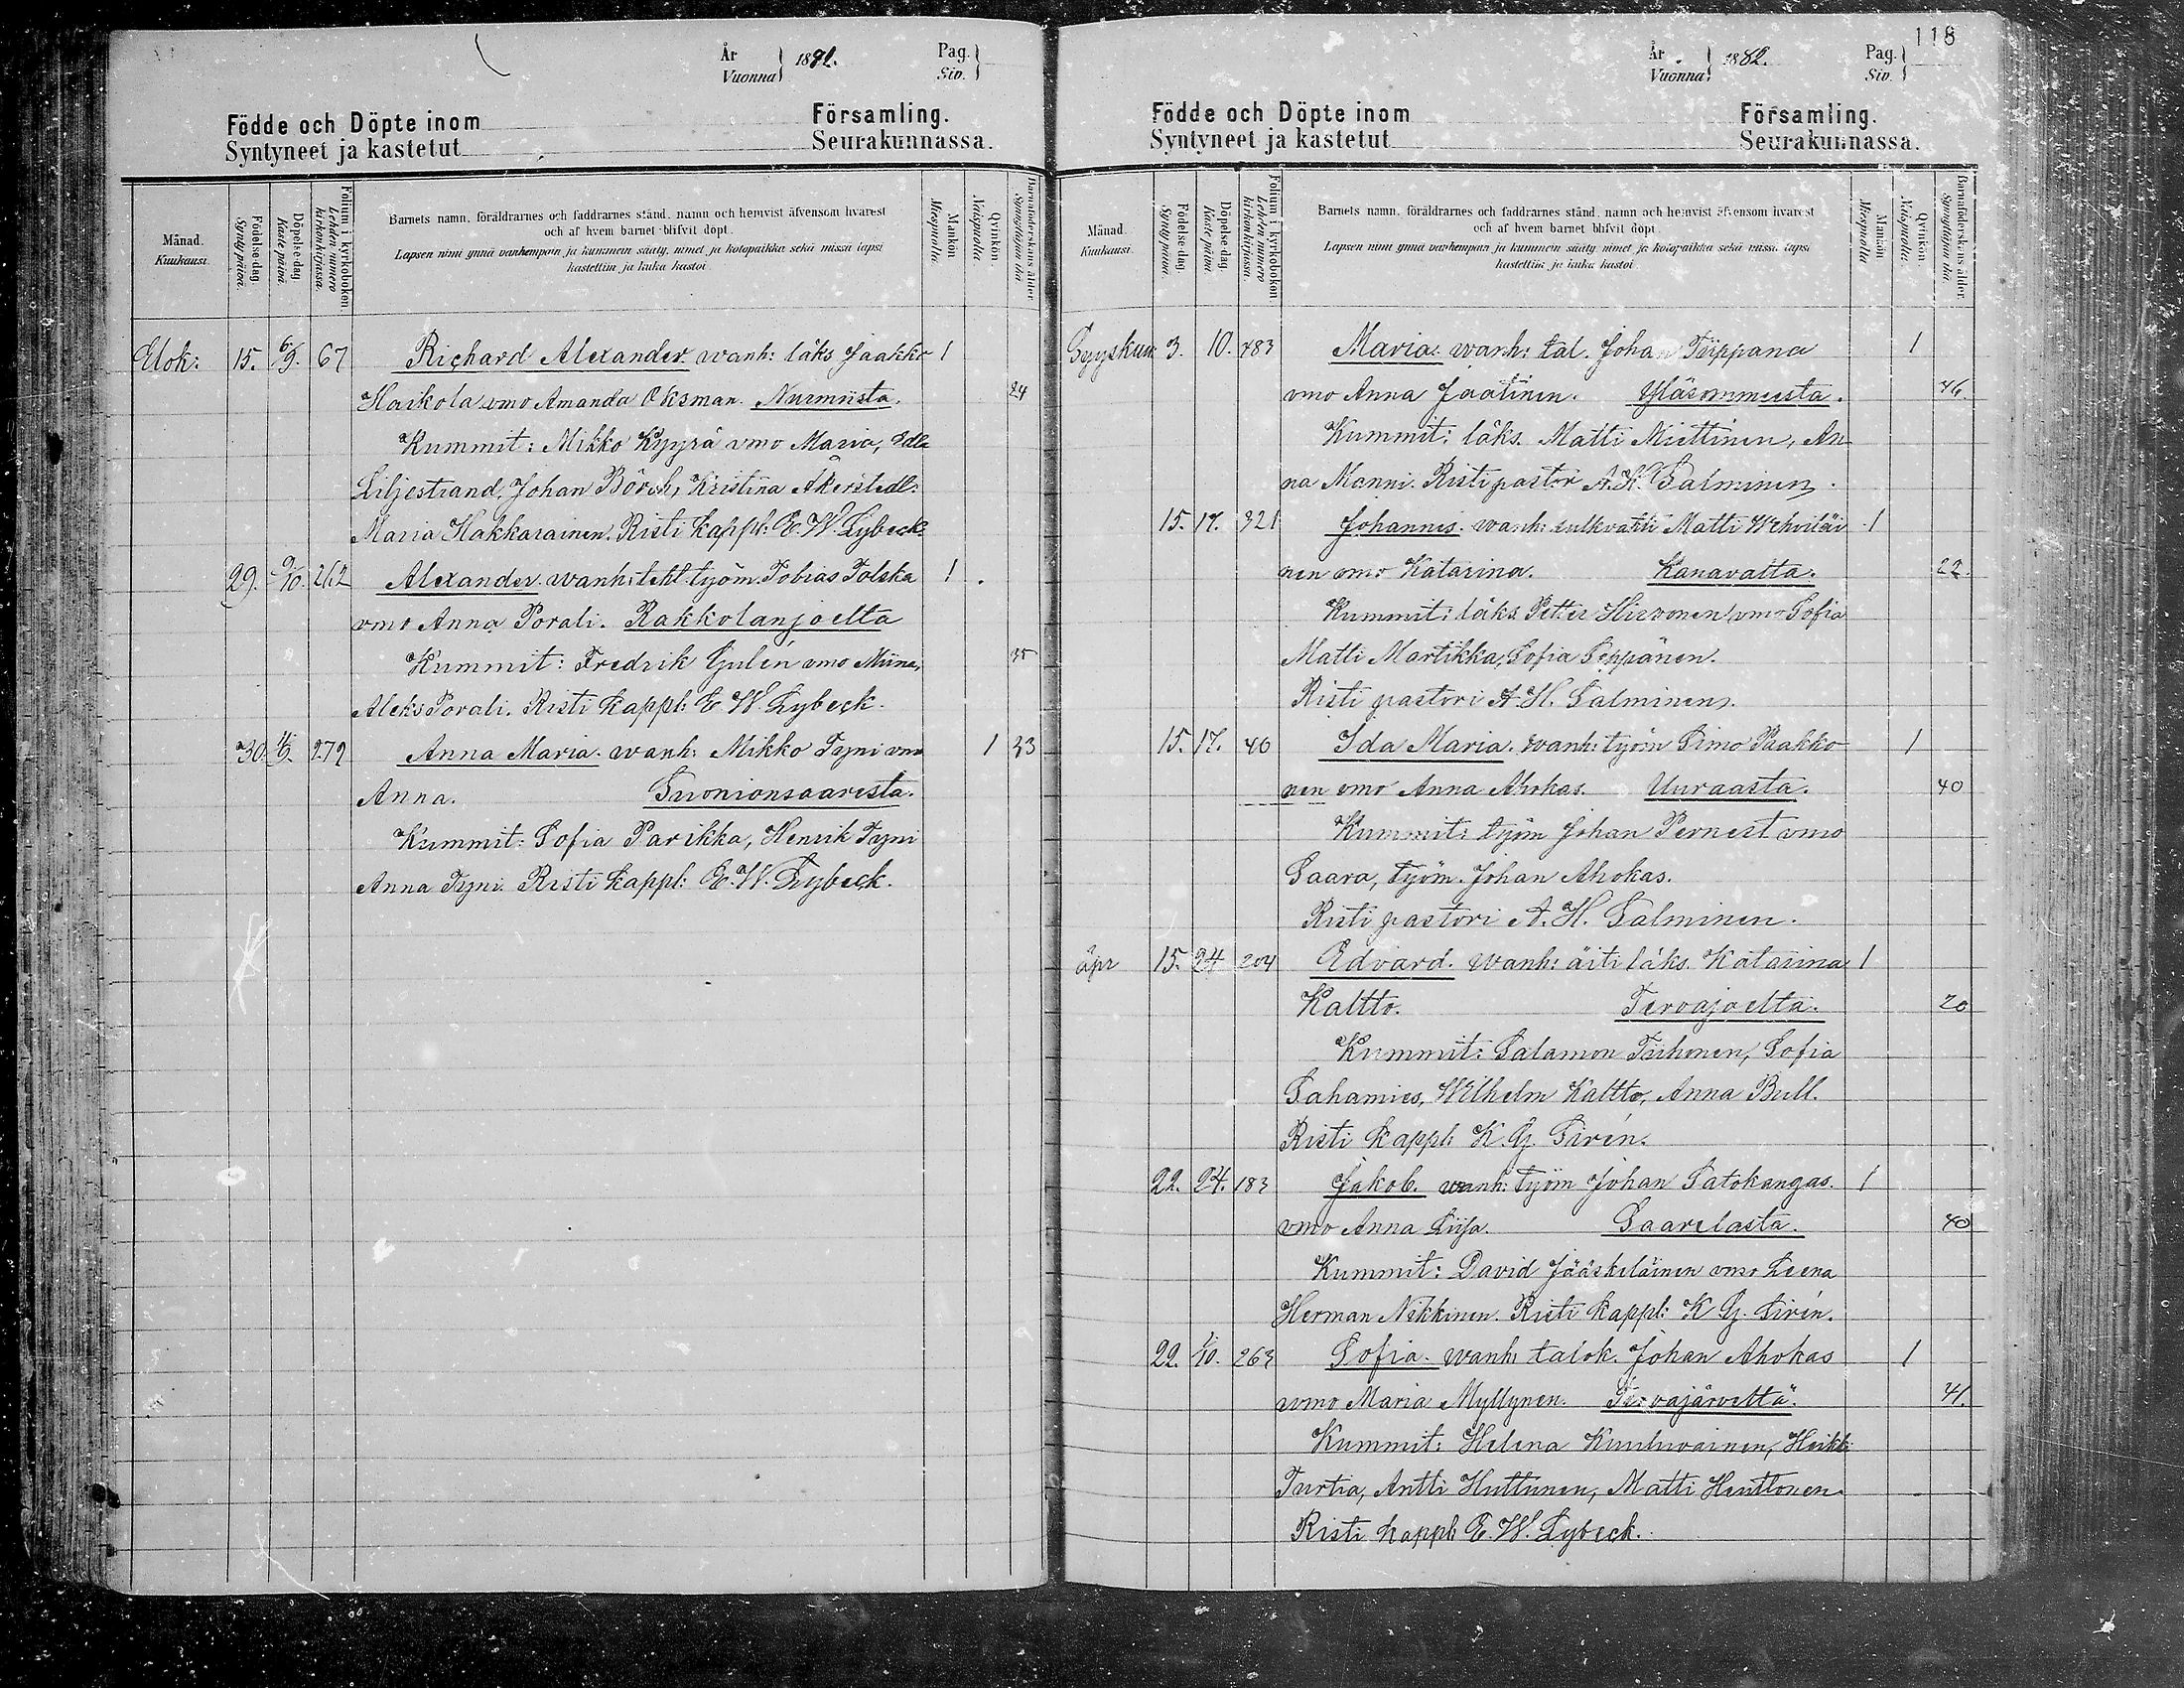 År
Vuonna } 1882. Pag.
Siv. }
Födde och Döpte inom Församling.
Syntyneet ja kastetut Seurakunnassa.
Månad.
Kuukausi.
Födelse dag.
Synty päivä.
Döpelse dag.
Kaste päivä.
Folium i kyrkoboken.
Lehden numero
kirkonkirjassa.
Barnets namn, föräldrarnes och faddrarnes stånd, namn och hemvist äfvensom hvarest
och af hvem barnet blifvit döpt.
Lapsen nimi ynnä vanhempain ja kummein sääty, nimet ja kotopaikka sekä missä lapsi
kastettiin ja kuka kastoi.
Mankön.
Miespuolia.
Qvinkön.
Naispuolia.
Barnaföderskans ålder.
Synnyttäjän ikä.
Elok: 15. 6/9. 67 Richard Alexander. wanh: läks Jaakko 1
Haikola vmo Amanda Oksman. Nurmista. 24
Kummit: Mikko Kyyrä vmo Maria, Edla
Liljestrand, Johan Börch, Kristina Åkerstedt:
Maria Hakkarainen. Risti kappl: E. W. Lybeck.
29. 9/10. 262 Alexander. wanh: tehl. työm. Tobias Tolska 1
vmo Anna Porali. Rakkolanjoelta
Kummit: Fredrik Gulén vmo Miina, 35
Aleks Porali. Risti kappl: E. W. Lybeck.
30. 272 Anna Maria. wanh: Mikko Tyni vmo 1 33
Anna. Suonionsaaresta.
Kummit: Sofia Parikka, Henrik Tyni
Anna Tyni. Risti kappl: E. W. Lybeck.
118
År
Vuonna } 1882. Pag.
Siv. }
Födde och Döpte inom Församling.
Syntyneet ja kastetut Seurakunnassa.
Månad.
Kuukausi.
Födelse dag.
Synty päivä.
Döpelse dag.
Kaste päivä.
Folium i kyrkoboken.
Lehden numero
kirkonkirjassa.
Barnets namn, föräldrarnes och faddrarnes stånd, namn och hemvist äfvensom hvarest
och af hvem barnet blifvit döpt.
Lapsen nimi ynnä vanhempain ja kummein sääty, nimet ja kotopaikka sekä missä lapsi
kastettiin ja kuka kastoi.
Mankön.
Miespuolia.
Qvinkön.
Naispuolia.
Barnaföderskans ålder.
Synnyttäjän ikä.
Syyskuu. 3. 10. 483 Maria. wanh: tal. Johan Tiippana 1
vmo Anna Jäätinen. Yläsommeesta. 46
Kummit: läks. Matti Miettinen, An
na Monni. Risti pastor A. H. Salminen.
15. 17. 321 Johannes. wanh: sulkvahti Matti Wehviläi 1
nen vmo Katarina. Kanavalta. 22.
Kummit: läks. Petter Hirvonen vmo Sofia
Matti Martikka, Sofia Seppänen.
Risti pastori A. H. Salminen.
15. 17. 40 Ida Maria. wanh: työm Simo Paakko 1
nen vmo Anna Ahokas. Uuraasta. 40
Kummit: työm Johan Pernest vmo
Saara, työm. Johan Ahokas.
Risti pastori A. H. Salminen.
äpr 15. 24 204 Edvard. wanh: äiti läks. Katarina 1
Kaltto. Tervajoelta. 20
Kummit: Salamon Tiihonen, Sofia
Sahamies, Wilhelm Kaltto, Anna Bull.
Risti kappl: K. G. Sirén.
22. 24. 183 Jakob. wanh: työm Johan Satokangas. 1
vmo Anna Liisa. Saarelasta. 40
Kummit: David Jääskeläinen vmo Leena
Herman Nikkinen. Risti kappl: K. G. Sirén.
22. 1/10. 263 Sofia. wanh: talok. Johan Ahokas 1
vmo Maria Myllynen. Tervajärveltä. 41.
Kummit: Helena Kuuluvainen, Heikki
Turtia, Antti Huttunen, Matti Henttonen.
Risti kappl: E. W. Lybeck.